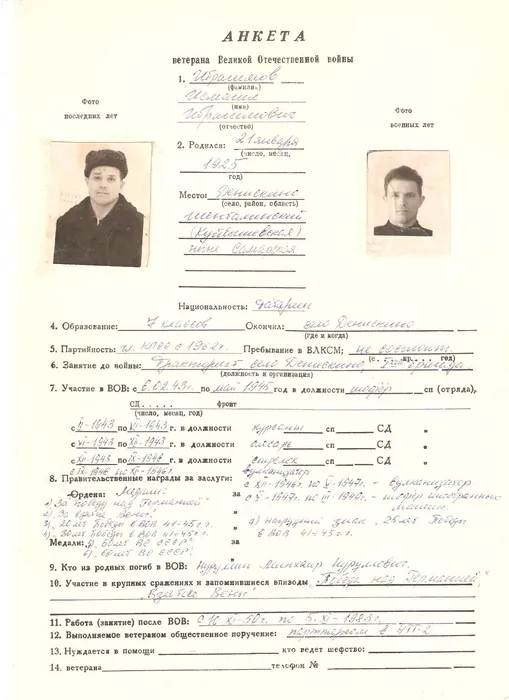 АНКЕТА
ветерана Великой Отечественной войны
1. Ибрагимов
(фамилия)
Исмаил
(имя)
Ибрагимович
(отчество)
Фото
последних лет
Фото
военных лет
2. Родился: 21 января
(число, месяц,
1925
год)
Место: Денискино
(село, район, область)
Шенталинский
(Куйбышевская)
ныне Самарская
Национальность: татарин
4. Образование: 7 классов Окончил: село Денискино
(где и когда)
5. Партийность: чл. КПСС с 1962 г. Пребывание в ВЛКСМ: не состоит
(с. пр. год)
6. Занятие до войны: Тракторист село Денискино, бригада
(должность и организация)
7. Участие в ВОВ: с 6.02.43 г. по май 1945 год в должности шофер сп (отряда),
СД фронт
(число, месяц, год)
с II-1943 по VI-1943 г. в должности курсант сп СД "
с VI-1943 по XII-1943 г. в должности слесарь сп СД "
с XII-1943 по IX-1946 г. в должности стрелок сп СД "
с IX-1946 по XII-1946 г. вулканизатор
8. Правительственные награды за заслуги: с XII-1946 г. по V-1947 г. - вулканизатор
Ордена: Медали: за с V-1947 г. по III-1948 г. - шофер иностранных
1) За победу над Германией" " машин.
2) За взятие Вены"
3) 20 лет Победы в ВОВ 41-45 г.г. " 7) нагрудный знак, 25 лет Победы
4) 30 лет Победы в ВОВ 41-45 г.г. " в ВОВ 41-45 г.г.
Медали: 5) 50 лет ВС СССР" за
6) 60 лет ВС СССР. "
9. Кто из родных погиб в ВОВ: Нуруллин Минхаир Нуруллович.
10. Участие в крупных сражениях и запомнившиеся эпизоды „Победа над Германией",
„Взятие Вены"
11. Работа (занятие) после ВОВ: С 10 XI-50 г. по 5.XI-1983 г.
12. Выполняемое ветераном общественное поручение: парторгом в
13. Нуждается в помощи кто ведет шефство:
14. ветерана телефон №